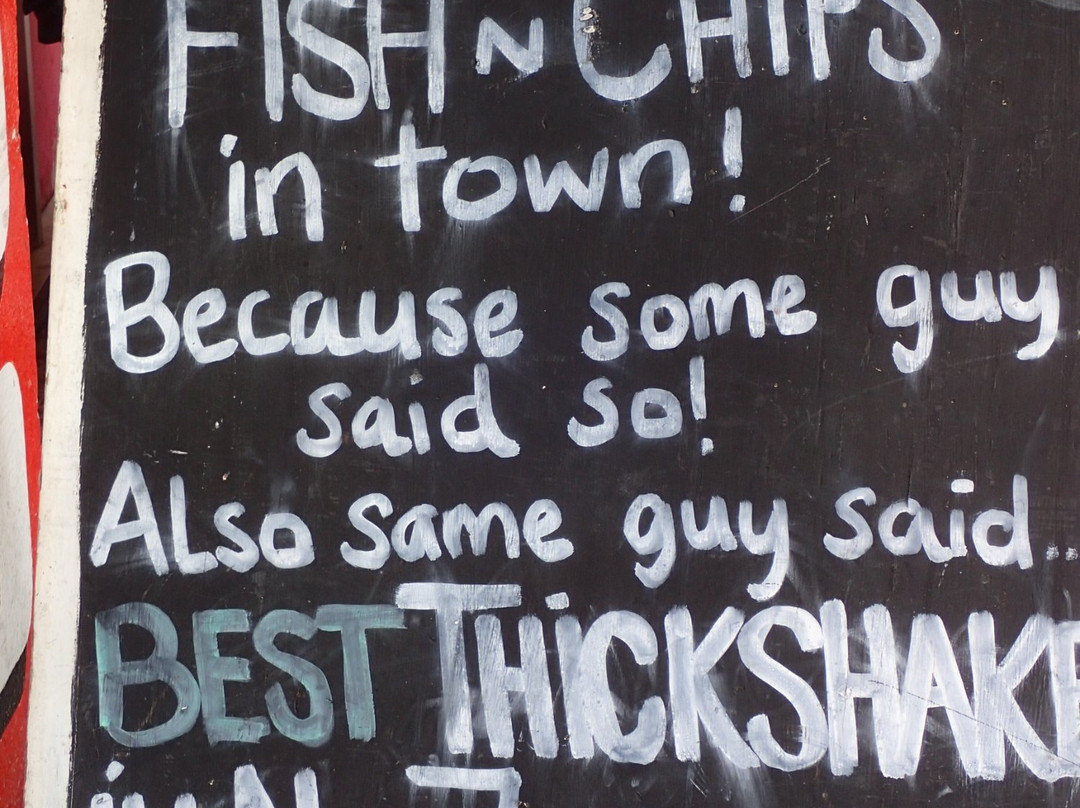 FISH N CHIPS
in town!
Because some guy
said so!
ALso same guy said..
BEST THiCKSHAKE
in N Z